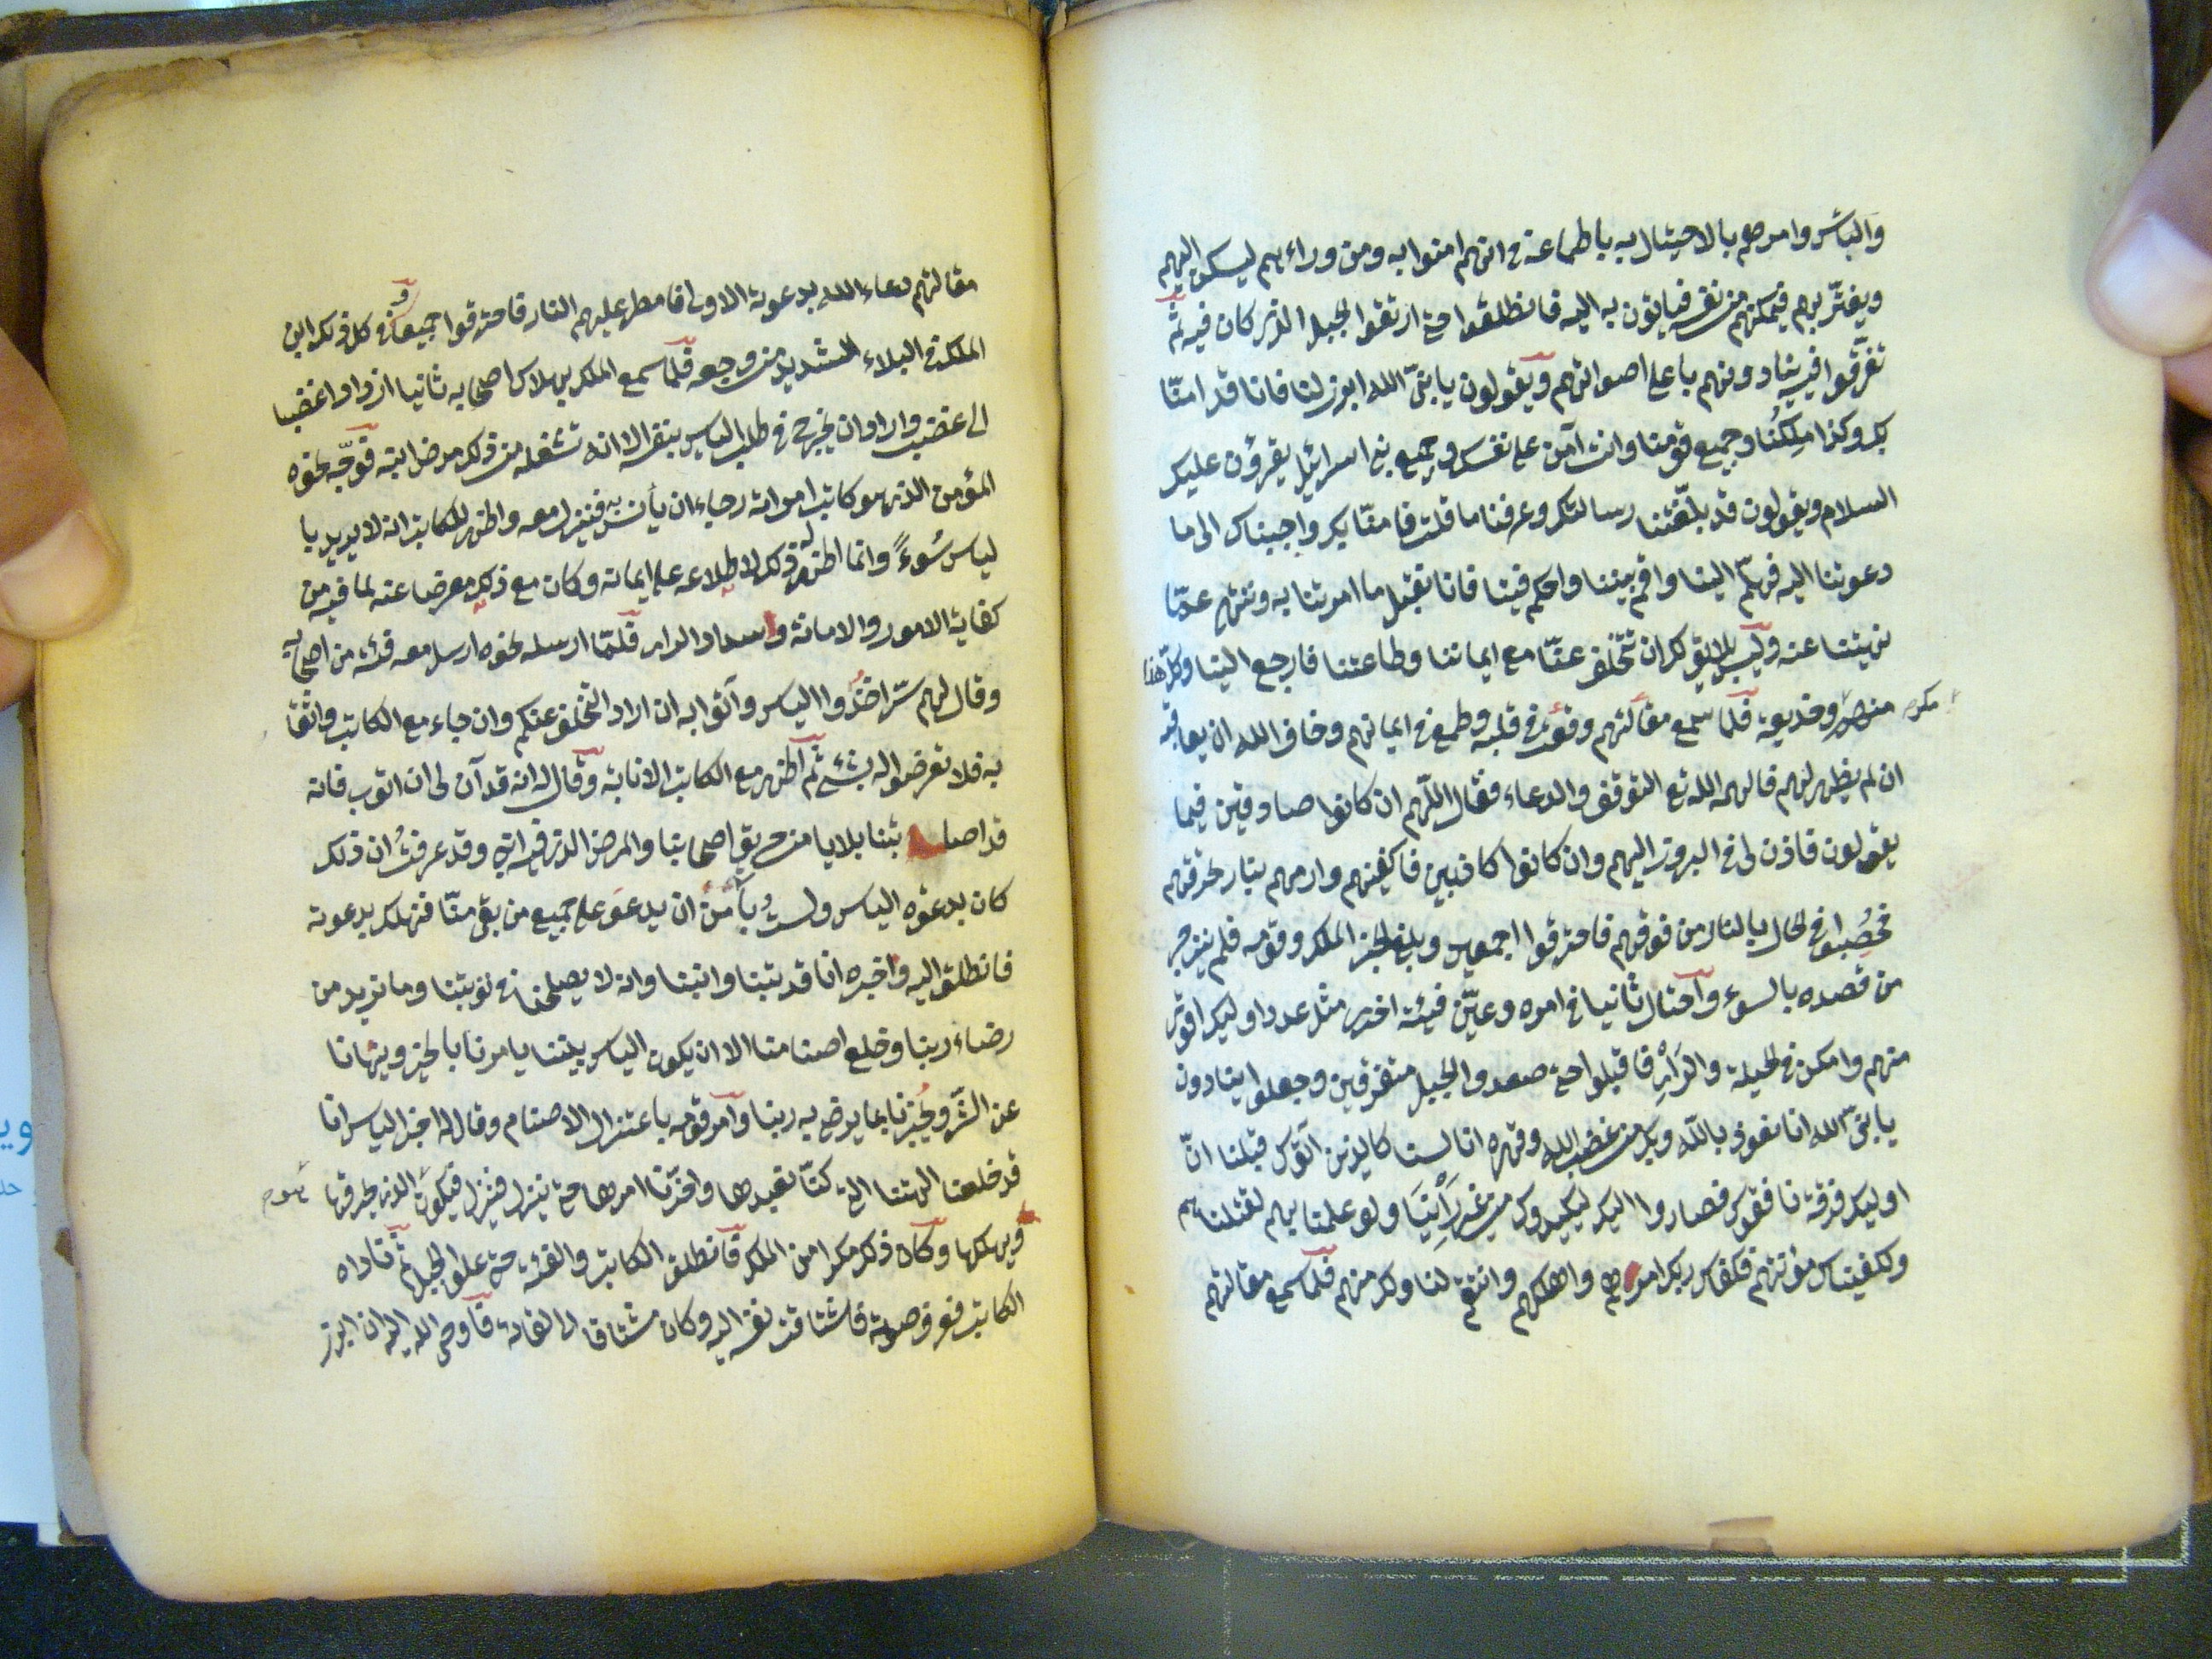 والباس وامرهم بالاحتيال به باطماعه في انهم امنوا به ومن وراءهم ليسكن اليهم
ويغترّ بهم فيمكنهم من نفسه فياتون به اليه فانطلقوا حتى ارتقوا الجبل الذي كان فيه ثم
تفرّقوا فيه ينادونهم باعلى اصواتهم ويقولون يا نبيّ الله ابرز لنا فانا قد امنّا
بك وكذا ملكُنا وجميع قومنا وانت آمن على نفسك وجميع بني اسرائيل يقرؤن عليك
السلام ويقولون قد بلّغتنا رسالتك وعرفنا ما قلت فامنّا بك واجبناك الى ما
دعوتنا اليه فهلمّ الينا واقم بيننا واحكم فينا فانا نقبل ما امرتنا به وننتهي عمّا
نهيتنا عنه وليس يلايق لك ان تتخلف عنّا مع ايماننا وطاعتنا فارجع الينا وكل هذا
مكر
منهم وخديعة فلما سمع مقالتهم وقعت في قلبه وطمع في ايمانهم وخاف الله ان يعاقبه
ان لم يظهر لهم فالهمه الله تع التوقف والدعاء فقال اللّهم ان كانوا صادقين فيما
يقولون فاذن لي في البروز اليهم وان كانوا كاذبين فاكفنيهم وارمهم بنار تحرقهم
فحُصِبوا في الحال بالنار من فوقهم فاحترقوا اجمعين وبلغ الخبر الملك وقومه فلم ينزجر
من قصده بالسوء واحتال ثانيا في امره وعيّن فيئة اخرى مثل عدد اوليك اقوى
منهم وامكن في الحيلة والرَأْي فاقبلوا حتى صعدوا الجبل متفرقين وجعلوا ينادون
يا نبيّ الله انا نعوذ بالله وبك من غضب الله وقهره انا لسنا كالذين اتوك قبلنا انّ
اوليك فرقة نافقوك فصاروا اليك ليكيدوك من غير رَأْيِنَا ولو علمنا بهم لقتلناهم
ولكفيناك مؤنتهم فكفاك ربك امرهم واهلكهم وانتقم لنا ولك منهم فلما سمع مقالتهم
مقالتهم دعاء الله بدعوته الاولى فامطر عليهم النار فاحترقوا جميعا وفي كل ذلك ابن
الملك في البلاء الشديد من وجعه فلما سمع الملك بهلاك اصحابه ثانيا ازداد غضبا
الى غضب واراد ان يخرج في طلب الياس بنفسه الا انه تشغله من ذلك مرض ابنه فوجّه نحوه
المؤمن الذي هو كاتب امراته رجاء ان يأنس به فينزل معه واظهر للكاتب انه لا يريد با
لياس سُوءً وانما اظهر له ذلك لاطلاعه على ايمانه وكان مع ذلك معرضا عنه لما فيه من
كفاية الامور والامانة واسداد الراى فلمّا ارسله نحوه ارسل معه فئة من اصحابه
وقال لهم سرّا خذُوا الياس وآتوا به ان اراد التخلف عنكم وان جاء مع الكاتب واثقا
به فلا تعرضوا له بشئ ثم اظهر مع الكاتب الانابة وقال له انه قد آن لى ان اتوب فانه
قد اصا بتنا بلايا من حريق اصحابنا والمرض الذي فيه ابني وقد عرفتُ ان ذلك
كان بدعوة الياس ولست بأمن ان يدعوَ على جميع من بقي منّا فنهلك بدعوته
فانطلق اليه واخبره انا قد تبنا وانبنا وانه لا يصلحنا في توبتنا وما نريد من
رضاء ربنا وخلع اصنامنا الا ان يكون الياس بيننا يامرنا بالخير وينهانا
عن الشّر ويُخبرنا بما يرضي به ربنا وامر قومه باعتزال الاصنام وقال له اخبر الياس انا
قد خلعنا الهتنا التي كنّا نعبدها واخرّنا امرها حتى ينزل فينزل فيكون الذي يحرقها
ويهلكها وكان ذلك مكرا من الملك فانطلق الكاتب والفئة حتى علوا الجبل ثم ناداه
الكاتب فعرف صوته فاشتاقت نفسه اليه وكان مشتاقا الى لقائه فاوحى الله اليه ان ابرز